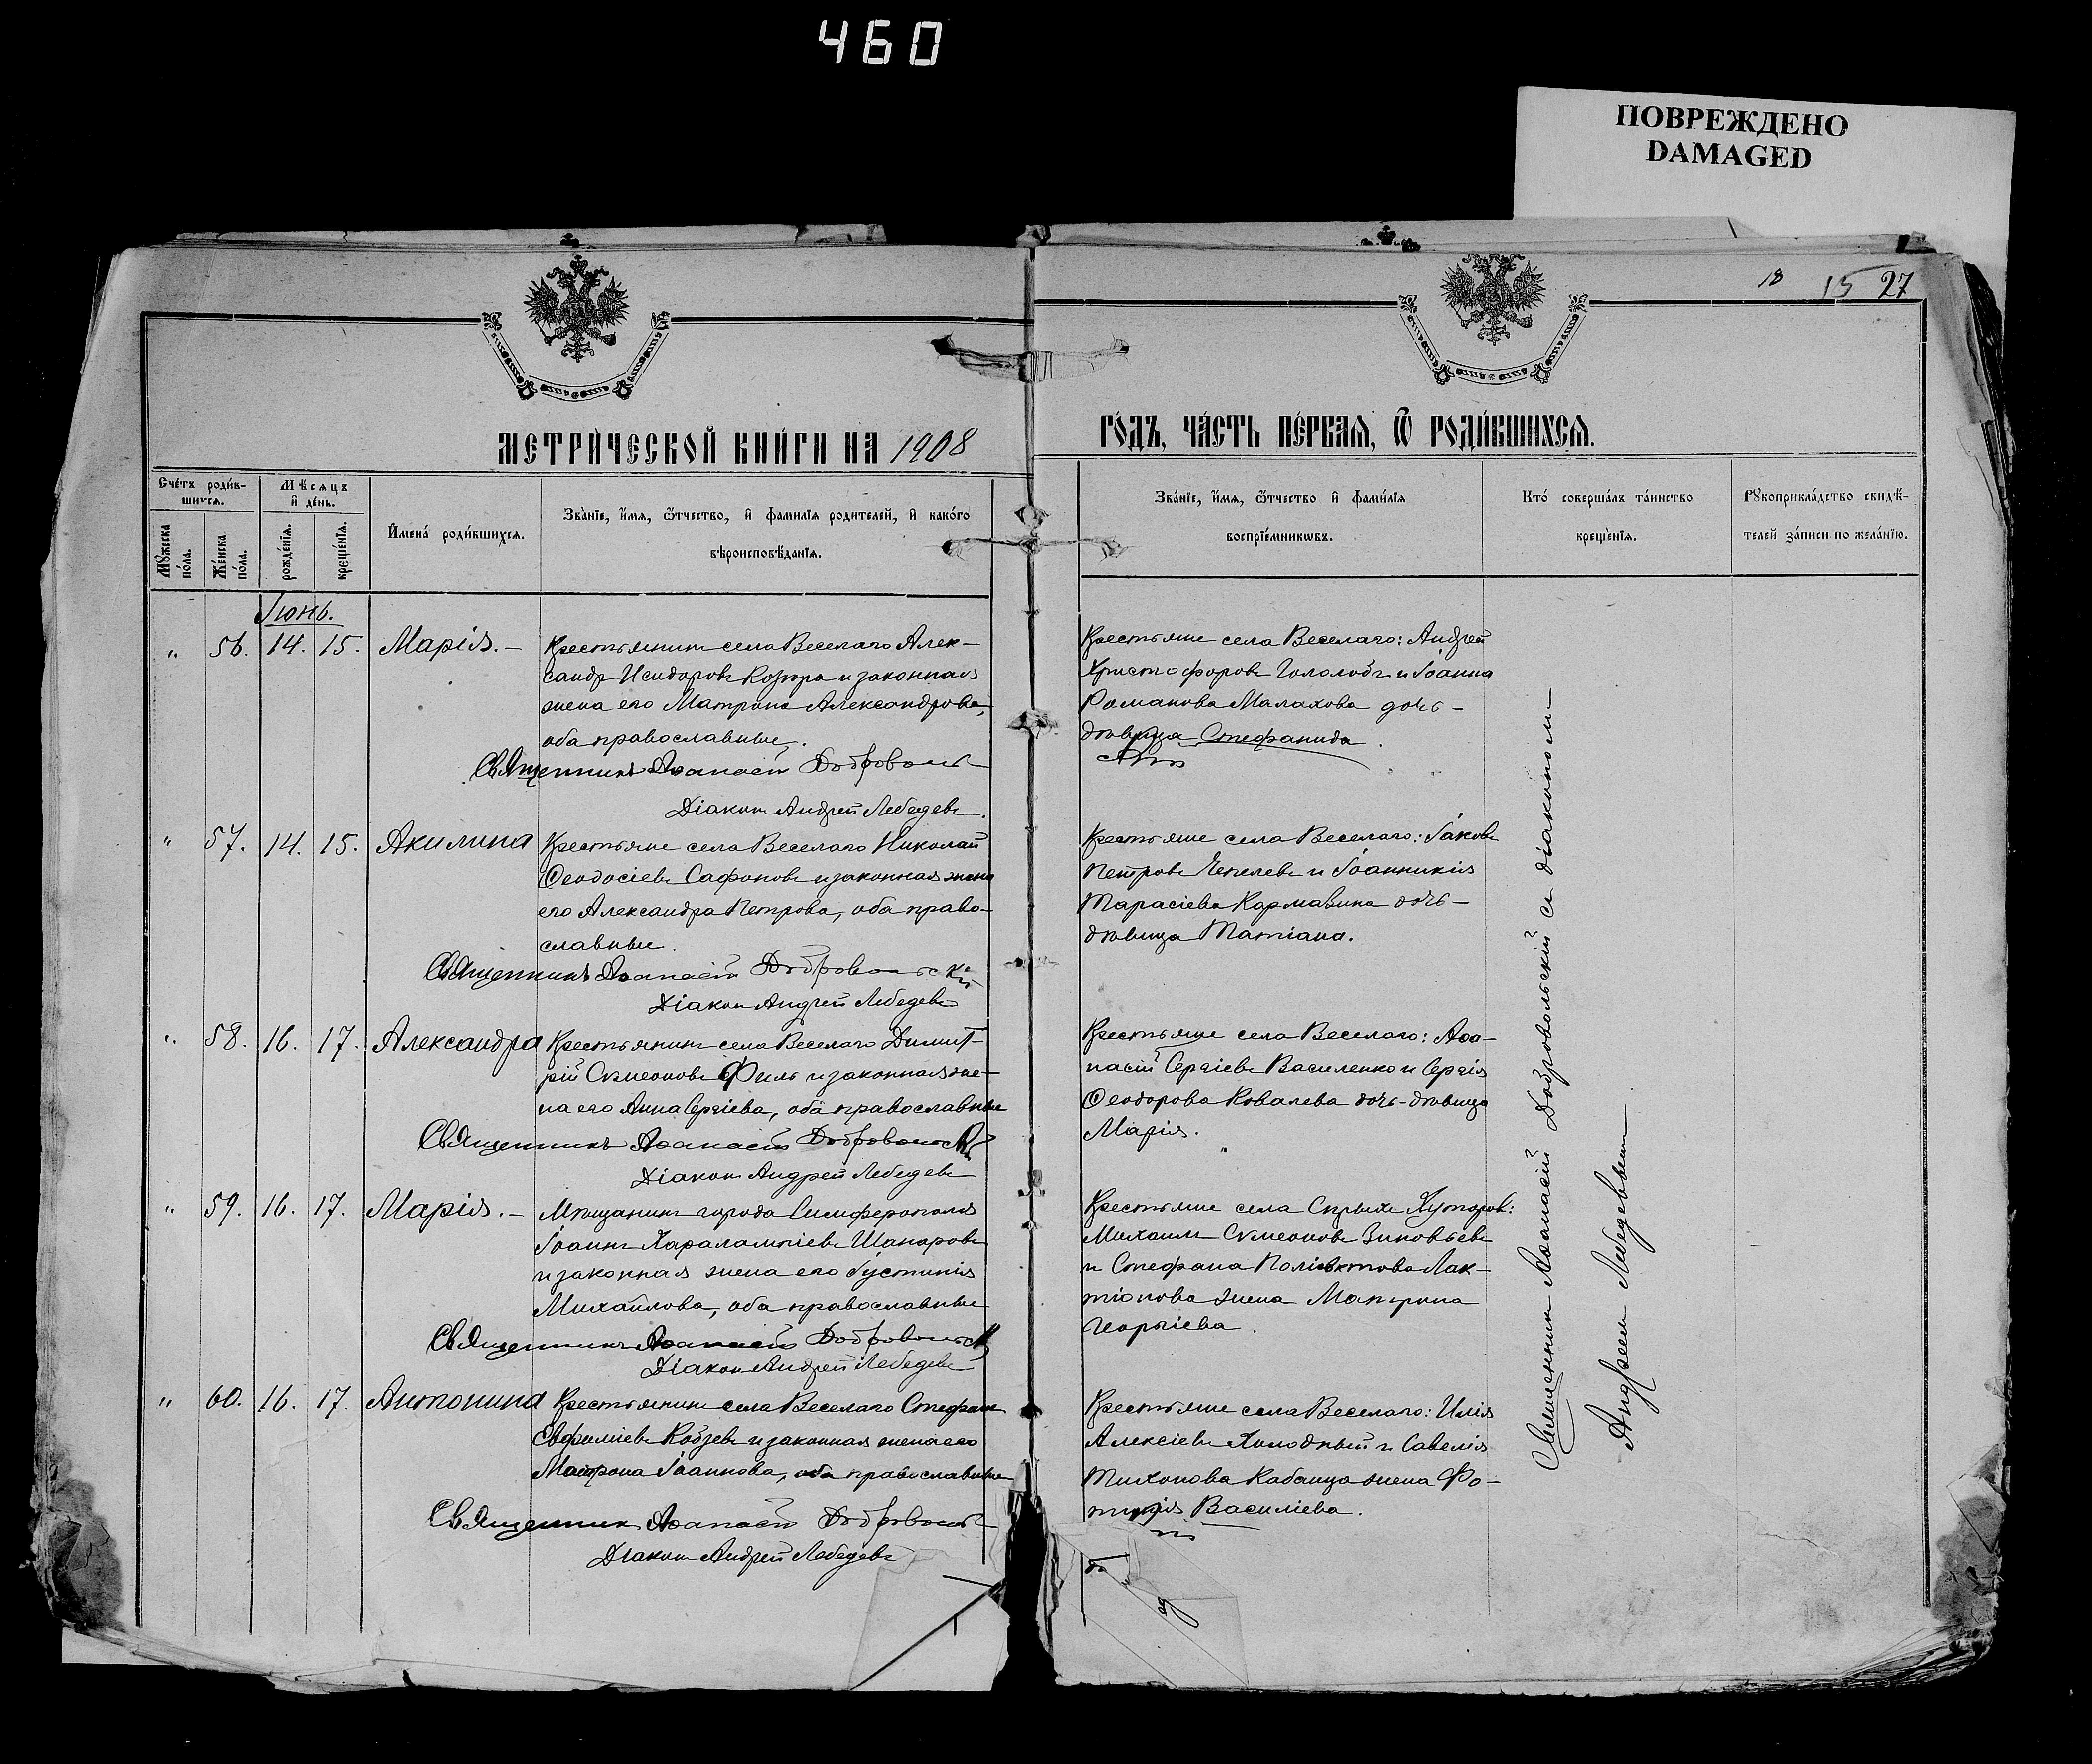 460
ПОВРЕЖДЕНО
DAMAGED
18 15 27
МЕТРИ́ЧЕСКОЙ КНИ́ГИ НА 1908
ГО́ДЪ, ЧА́СТЬ ПЕ́РВАѦ, Ѿ РОДИ́ВШИХСѦ.
Сче́тъ роди́в-
шихсѧ.
Мѣ́сѧцъ
и҆ де́нь.
Мꙋ́жеска
по́ла.
Же́нска
по́ла.
рожде́нїѧ.
креще́нїѧ.
И҆мена̀ роди́вшихсѧ.
Зва́нїе, и҆́мѧ, ѻ҆́тчество, и҆ фами́лїѧ роди́телей, и҆ како́го
вѣроисповѣ́данїѧ.
Зва́нїе, и҆́мѧ, ѻ҆́тчество и҆ фами́лїѧ
воспрїе́мникωвъ.
Кто́ соверша́лъ та́инство
креще́нїѧ.
Рꙋкоприкла́дство свидѣ́-
телей за́писи по жела́нїю.
Іюнь.
„ 56. 14. 15. Марія. –
Крестьянинъ села Веселаго Алек-
сандръ Исидоровъ и законная
жена его Матрона Александрова,
оба православные.
Священникъ Аѳанасій Добровольс
Діаконъ Андрей Лебедевъ.
Крестьяне села Веселаго: Андрей
Христофоровъ Гололобъ и Іоанна
Романова Малахова дочь –
дѣвица Стефанида.
„ 57. 14. 15. Акилина
Крестьяне села Веселаго Николай
Ѳеодосіевъ Сафоновъ и законная жена
его Александра Петрова, оба право-
славные.
Священникъ Аѳанасій Добровольскій
Діаконъ Андрей Лебедевъ
Крестьяне села Веселаго: Іаковъ
Петровъ Чепелевъ и Іоанникія
Тарасіева Кармазина дочь –
дѣвица Татіана.
„ 58. 16. 17. Александра
Крестьянинъ села Веселаго Димит-
рій Симеоновъ Филь и законная же-
на его Анна Сергіева, оба православные
Священникъ Аѳанасій Добровольскій
Діаконъ Андрей Лебедевъ
Крестьяне села Веселаго: Аѳа-
насій Сергіевъ Василенко и Сергія
Ѳеодорова Ковалева дочь-дѣвица
Марія.
„ 59. 16. 17. Марія. –
Мѣщанинъ города Симферополя
Іоаннъ Харалампіевъ Шапоровъ
и законная жена его Іустинія
Михайлова, оба православные
Священникъ Аѳанасій Добровольск
Діаконъ Андрей Лебедевъ
Крестьяне села Хуторовъ:
Михаилъ Симеоновъ Зиновьевъ
и Стефана Поліектова Лак-
тіонова жена Матрона
Георгіева.
„ 60. 16. 17. Антонина
Крестьянинъ села Веселаго Стефанъ
Евфиміевъ Кобзевъ и законная жена его
Матрона Іоаннова, оба православные
Священникъ Аѳанасій Добровольс
Діаконъ Андрей Лебедевъ
Крестьяне села Веселаго: Илія
Алексіевъ Холодный и Савелія
Тихонова Кабанца жена Фо-
тинія Василіева.
Священникъ Аѳанасій Добровольскій съ діакономъ –
Андреемъ Лебедевымъ